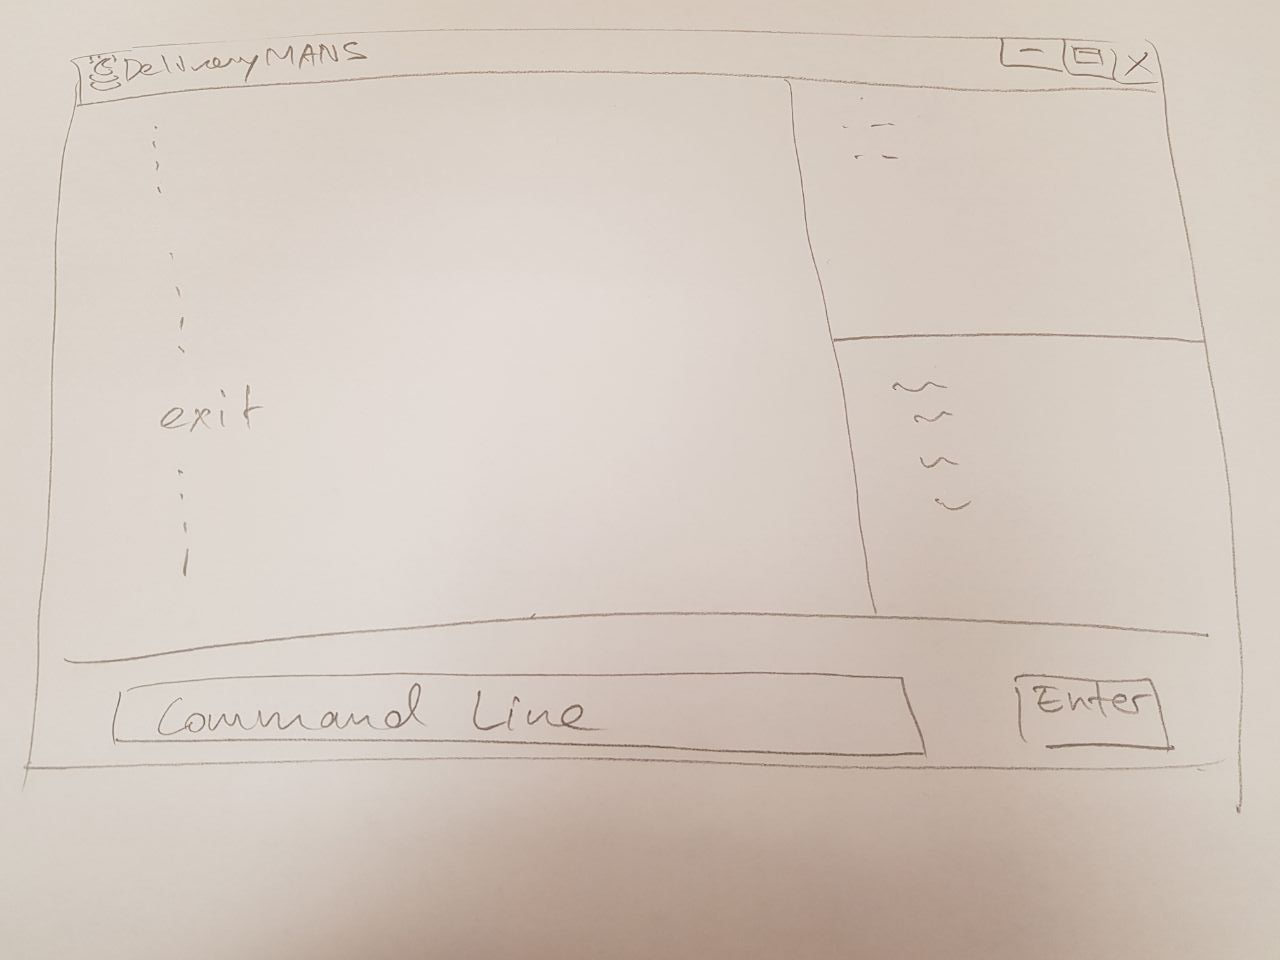 DeliveryMANS
exit
Command Line
Enter